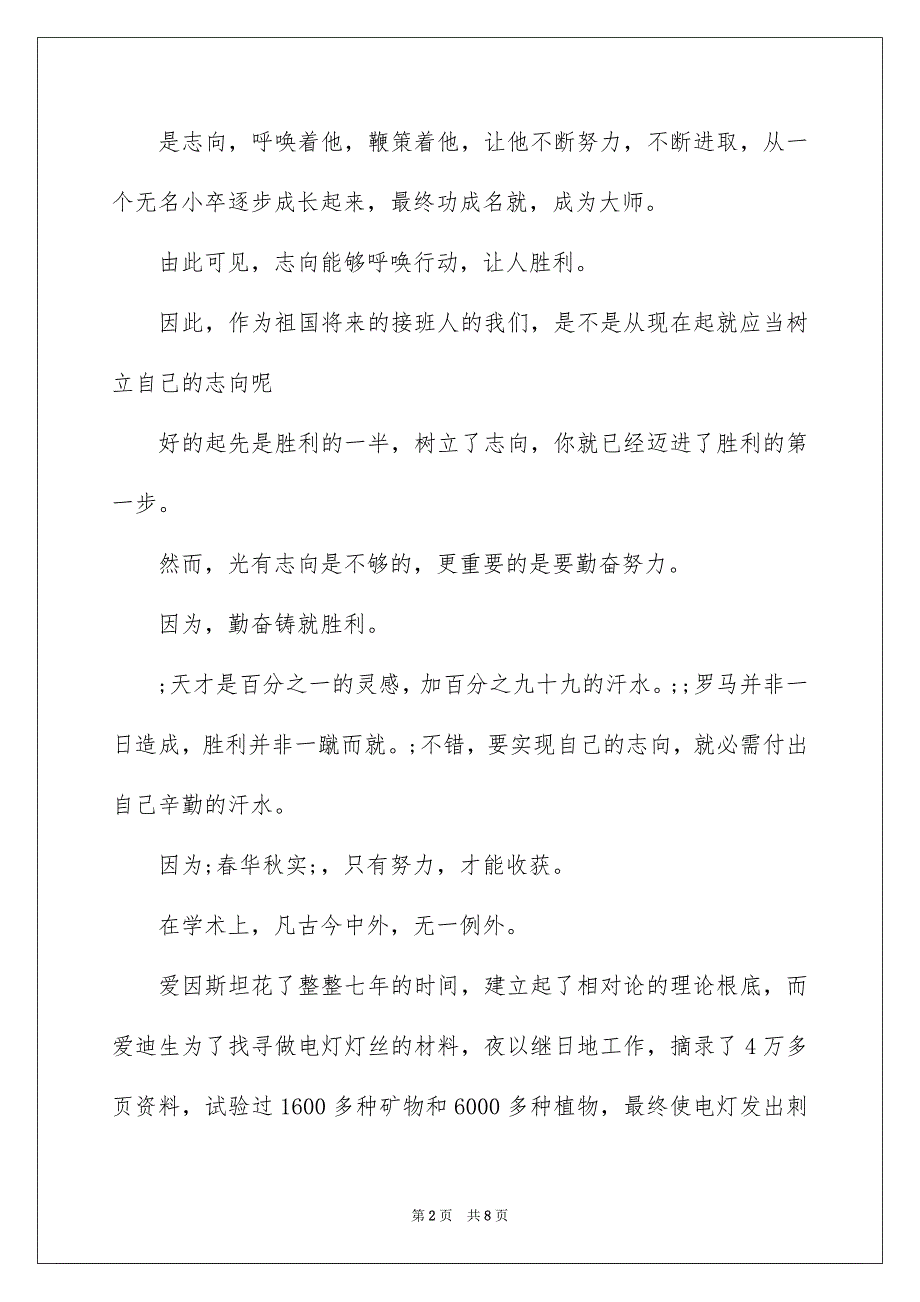 是志向，呼唤着他，鞭策着他，让他不断努力，不断进取，从一
个无名小卒逐步成长起来，最终功成名就，成为大师。
由此可见，志向能够呼唤行动，让人胜利。
因此，作为祖国将来的接班人的我们，是不是从现在起就应当树
立自己的志向呢
好的起先是胜利的一半，树立了志向，你就已经迈进了胜利的第
一步。
然而，光有志向是不够的，更重要的是要勤奋努力。
因为，勤奋铸就胜利。
;天才是百分之一的灵感，加百分之九十九的汗水。;;罗马并非一
日造成，胜利并非一蹴而就。;不错，要实现自己的志向，就必需付出
自己辛勤的汗水。
因为;春华秋实;，只有努力，才能收获。
在学术上，凡古今中外，无一例外。
爱因斯坦花了整整七年的时间，建立起了相对论的理论根底，而
爱迪生为了找寻做电灯灯丝的材料，夜以继日地工作，摘录了 4 万多
页资料，试验过 1600 多种矿物和 6000 多种植物，最终使电灯发出刺
第 2 页 共 8 页